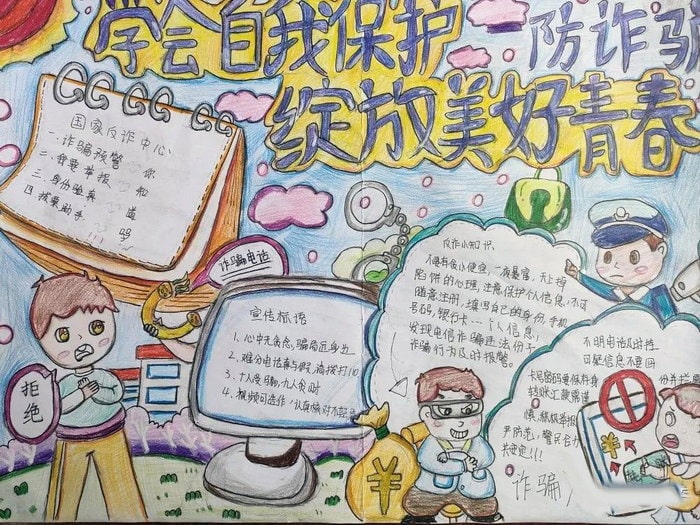 学会自我保护
防诈骗
绽放美好青春
国家反诈中心
一.诈骗预警 你
二、我要举报 和
三、身份验真 道
四 报案助手 吗
诈骗电话
拒绝
宣传标语
1、心中无贪念,骗局远身边
2、难分电话真与假,请拨打110
3、十人受骗,九人贪财
4、视频可造作,认真核对不轻易
反诈小知识.
不要有贪小便宜,一夜暴富,天上掉
陷饼的心理,注意保护个人信息,不可
随意注册,填写自己的身份,手机
号码,银行卡……个人信息,
发现电信诈骗违法份子
诈骗行为及时报警。
不明电话及时挂
可疑信息不要回
卡号密码要保存
转账汇款需谨
慎,积极举报
严防范,警民合力
¥
¥
诈骗